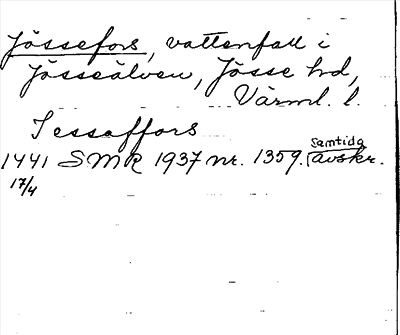 Jössefors, vattenfall i
Jösseälven, Jösse hd,
Värml. l.
Iessaffors
1441 SMR 1937 nr. 1359. samtida avskr.
17/4